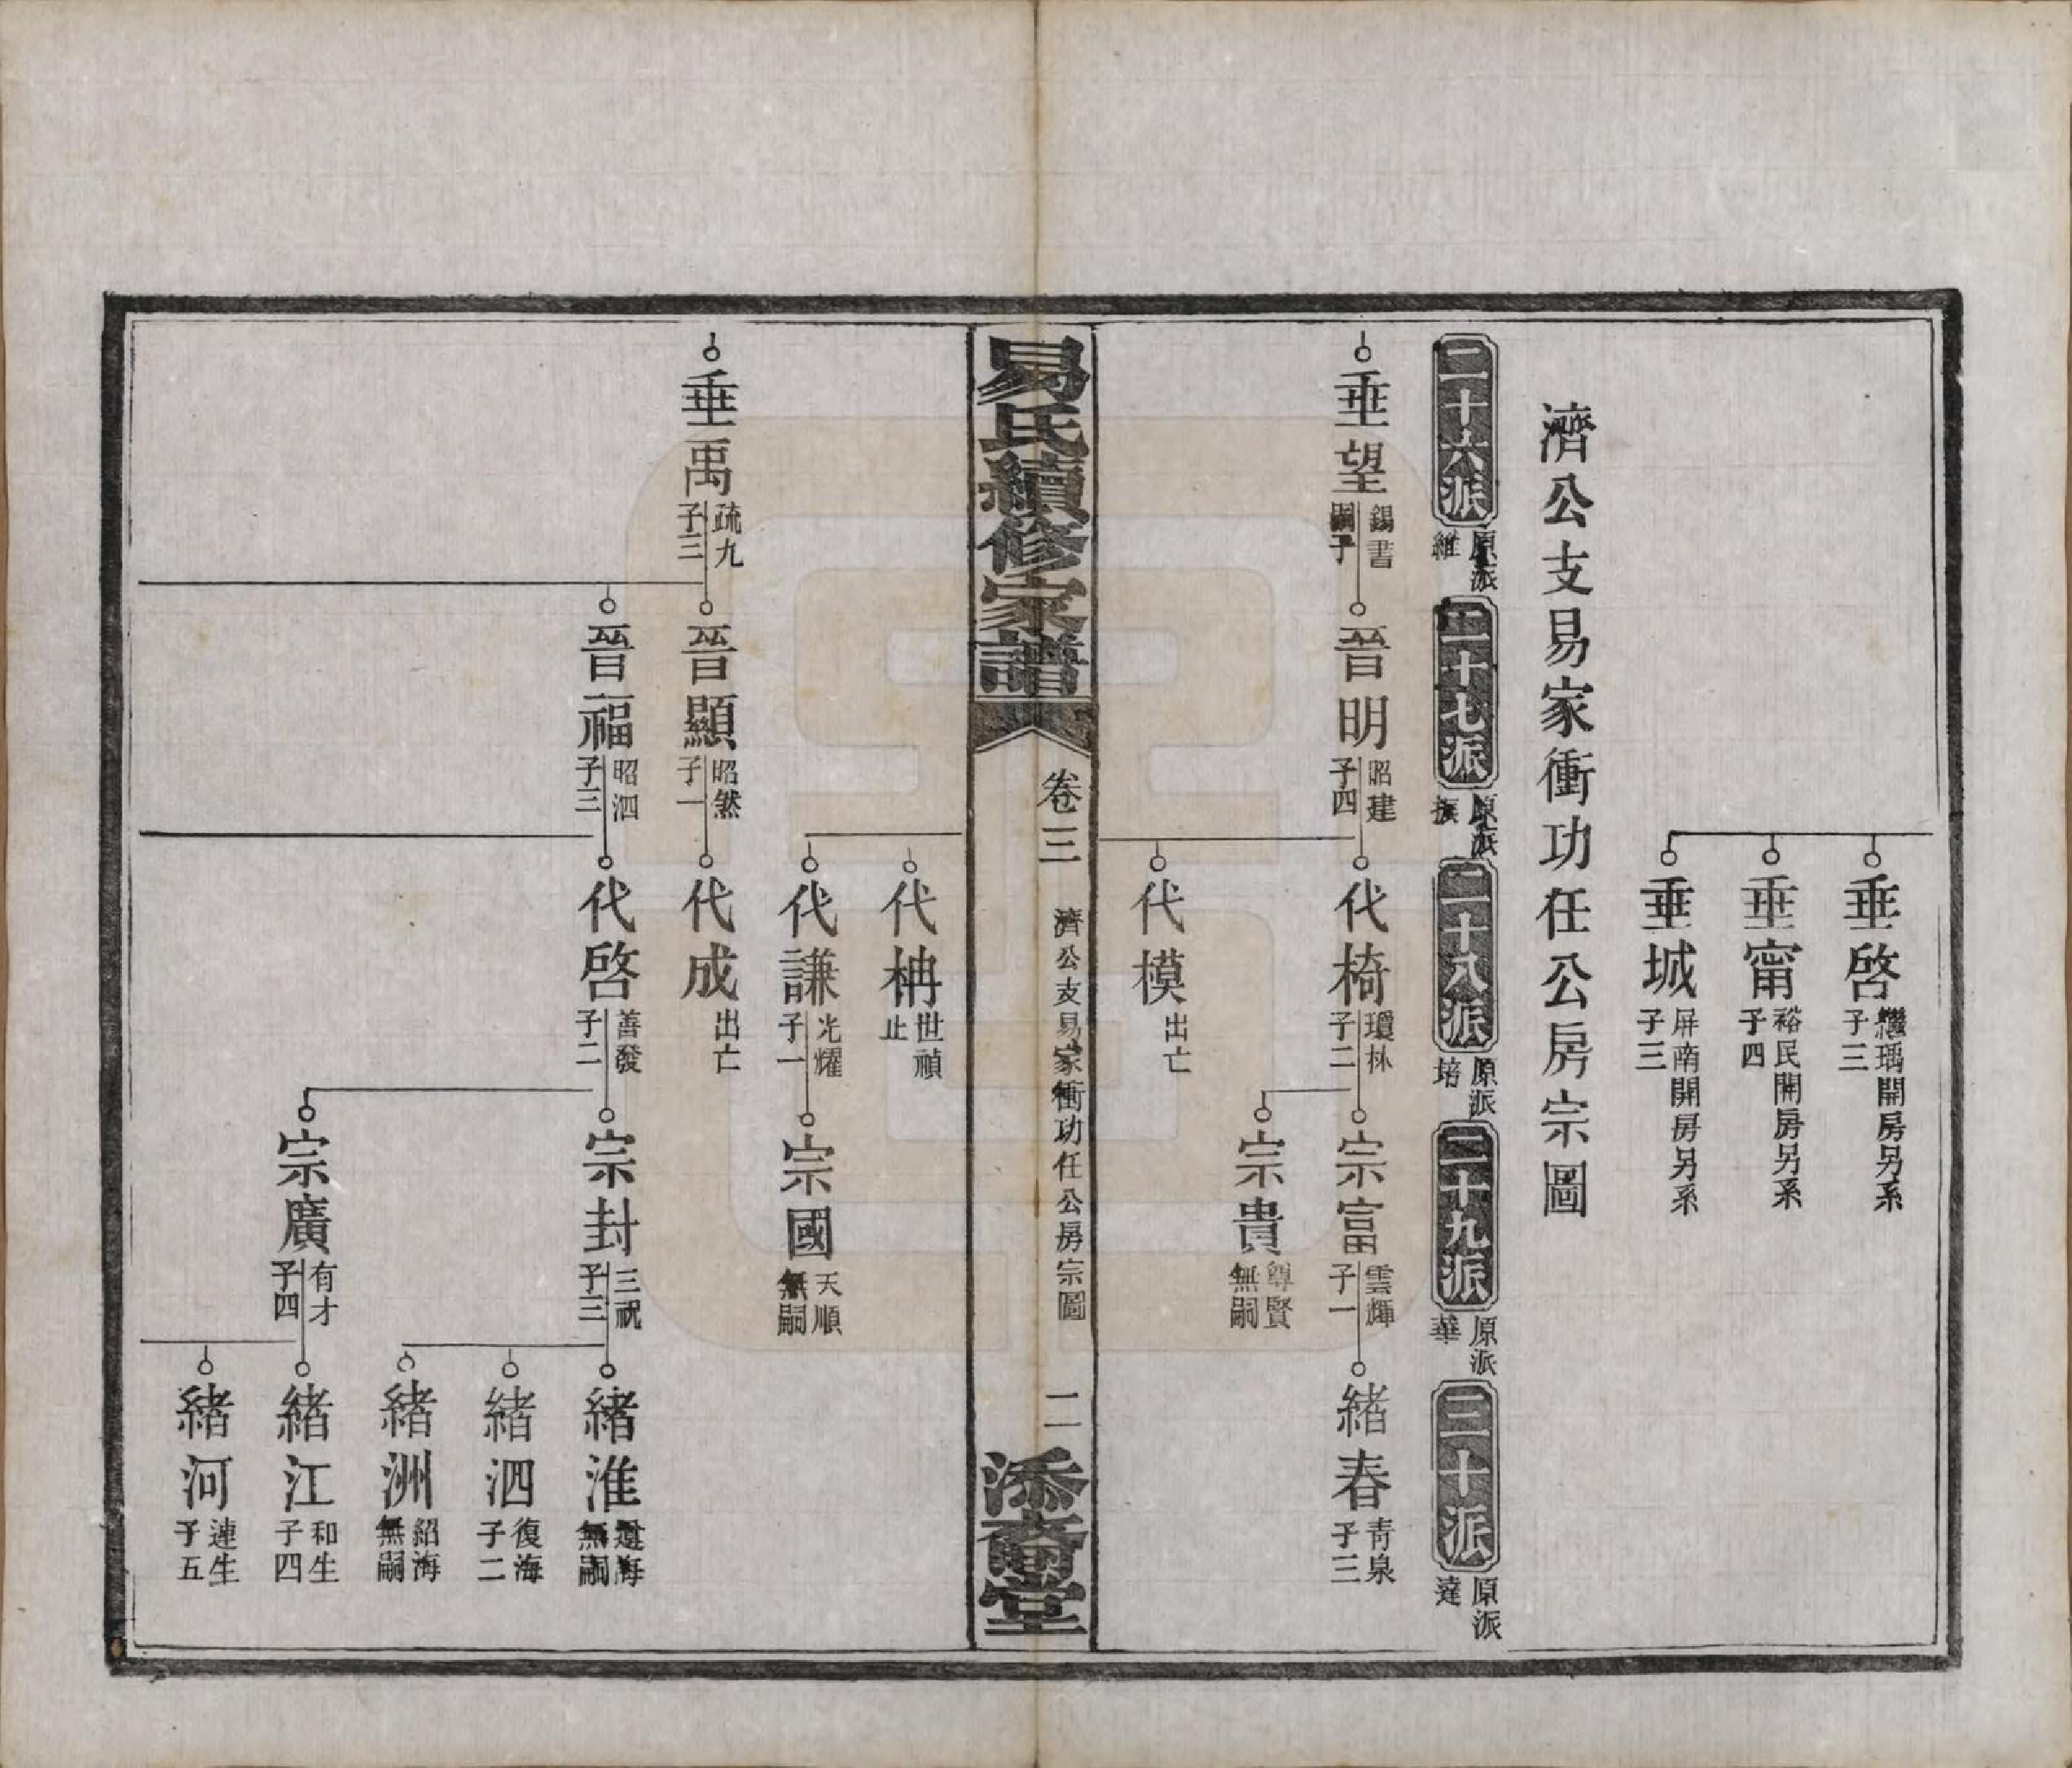 垂啓 繼瑀開房另系 子三
垂甯 裕民開房另系 子四
垂城 屏南開房另系 子三
濟公支易家衝功任公房宗圖
二十六派 原派維
二十七派 原派振
二十八派 原派培
二十九派 原派華
三十派 原派達
垂望 錫書 嗣子
晉明 昭建 子四
代椅 瓊林 子二
宗富 雲輝 子一
緒春 青泉 子三
宗貴 尊賢 無嗣
代模 出亡
易氏續修家譜
卷三
濟公支易家衝功任公房宗圖
二
添裔堂
代柟 世禎 止
代謙 光耀 子一
宗國 天順 無嗣
垂禹 疏九 子三
晉顯 昭然 子一
代成 出亡
晉福 昭泗 子三
代啓 善發 子二
宗封 三祝 子三
緒淮 海 無嗣
緒泗 復海 子二
緒洲 紹海 無嗣
宗廣 有才 子四
緒江 和生 子四
緒河 連生 子五